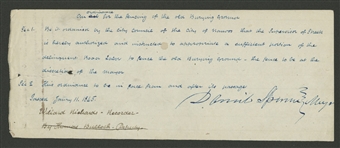 ordinance
for the fencing of the old Burying Ground
Sec 1. Be it ordained by the City Council of the City of Nauvoo that the Supervisor of Streets
is hereby authorized and instructed to appropriate a sufficient portion of the
delinquent Road Labor to fence the old Burying Ground. the fence to be at the
direction of the Mayor
Sec 2 This ordinance to be in force from and after its passage
Passed January 11. 1845.
Daniel Spencer Mayor
Willard Richards - Recorder
By Thomas Bullock